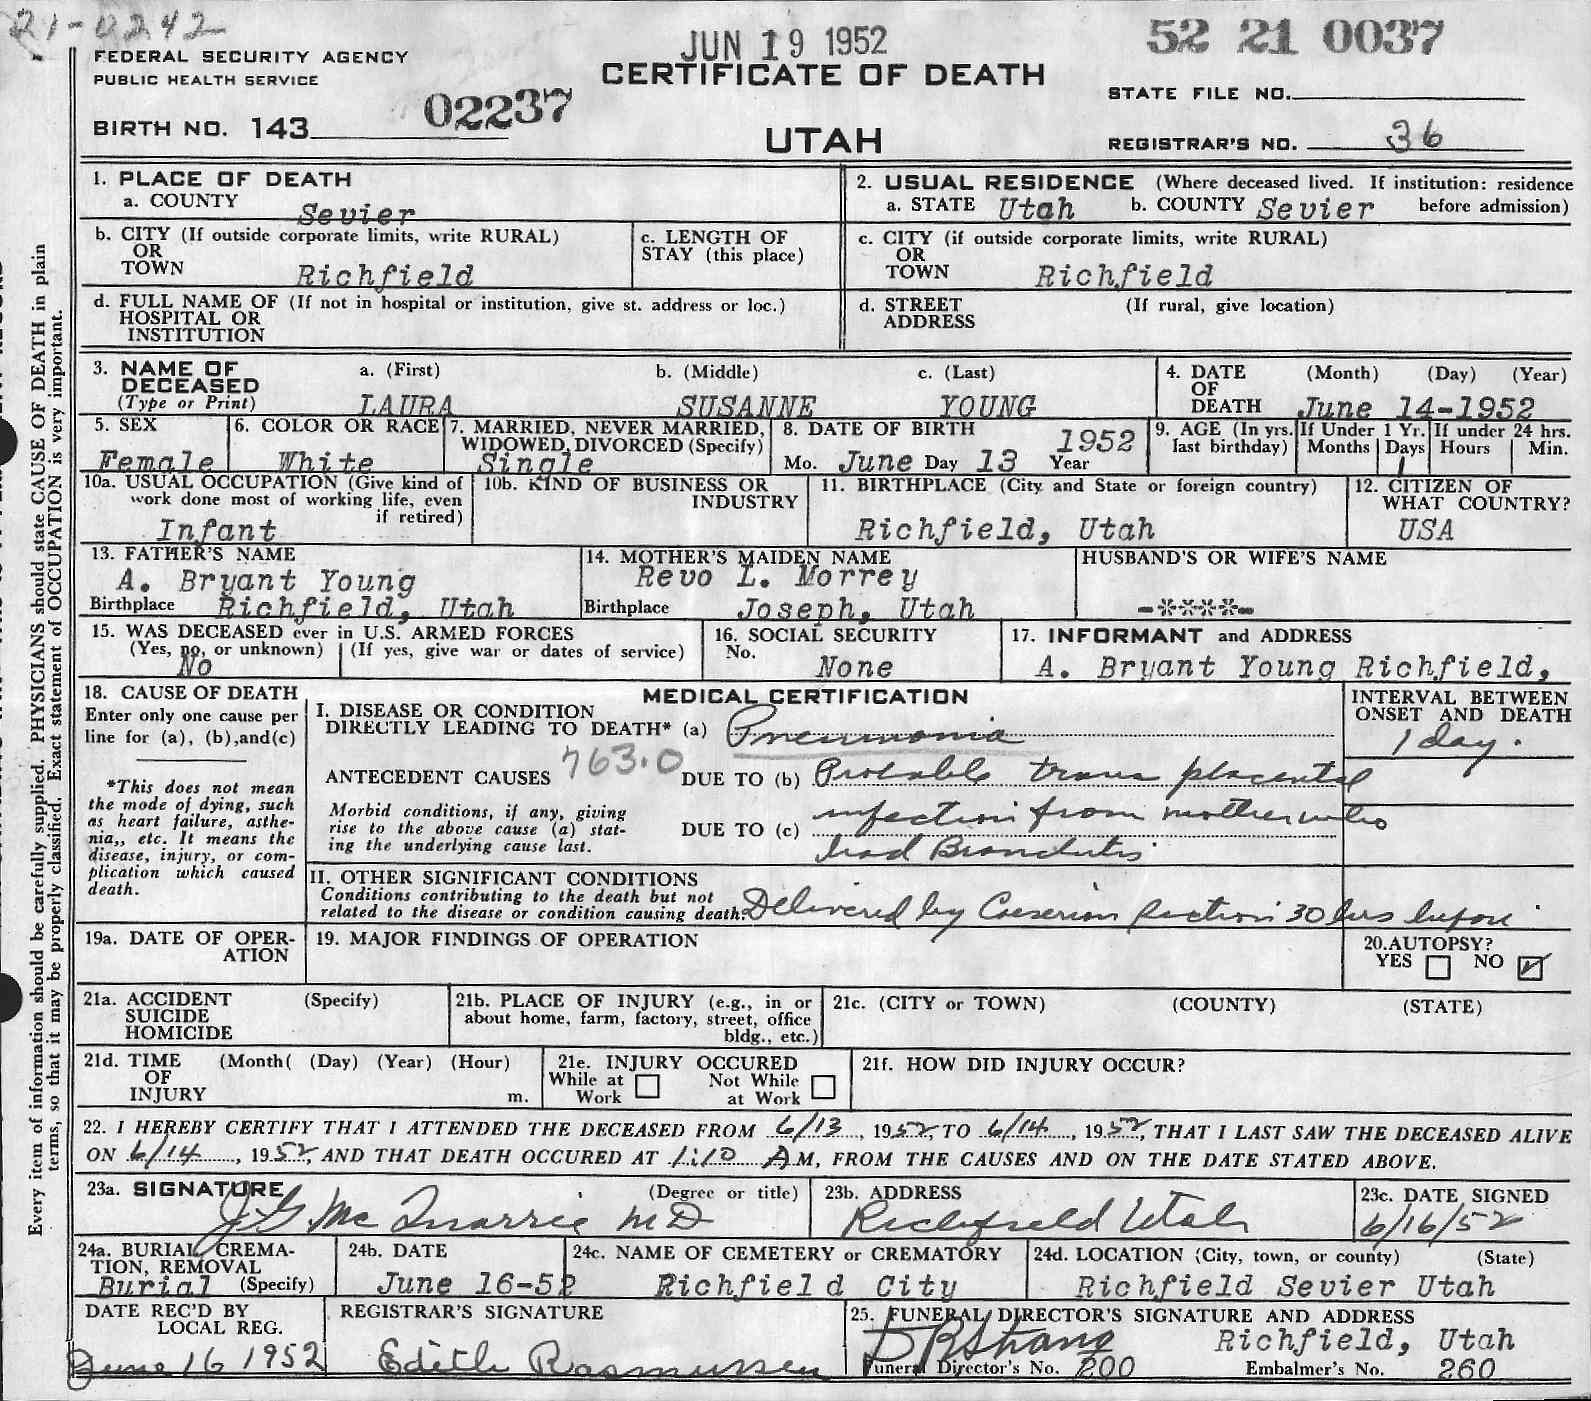 21-0242
JUN 19 1952
52 21 0037
FEDERAL SECURITY AGENCY
PUBLIC HEALTH SERVICE
CERTIFICATE OF DEATH
STATE FILE NO.
BIRTH NO. 143 02237
UTAH
REGISTRAR'S NO. 36
1. PLACE OF DEATH
a. COUNTY Sevier
2. USUAL RESIDENCE (Where deceased lived. If institution: residence
a. STATE Utah b. COUNTY Sevier before admission)
b. CITY (If outside corporate limits, write RURAL)
OR
TOWN Richfield
c. LENGTH OF
STAY (this place)
c. CITY (if outside corporate limits, write RURAL)
OR
TOWN Richfield
d. FULL NAME OF (If not in hospital or institution, give st. address or loc.)
HOSPITAL OR
INSTITUTION
d. STREET (If rural, give location)
ADDRESS
3. NAME OF a. (First) b. (Middle) c. (Last)
DECEASED
(Type or Print) LAURA SUSANNE YOUNG
4. DATE (Month) (Day) (Year)
OF
DEATH June 14-1952
5. SEX
Female
6. COLOR OR RACE
White
7. MARRIED, NEVER MARRIED,
WIDOWED, DIVORCED (Specify)
Single
8. DATE OF BIRTH 1952
Mo. June Day 13 Year
9. AGE (In yrs. last birthday)
If Under 1 Yr. If under 24 hrs.
Months Days Hours Min.
1
10a. USUAL OCCUPATION (Give kind of
work done most of working life, even
if retired)
Infant
10b. KIND OF BUSINESS OR
INDUSTRY
11. BIRTHPLACE (City and State or foreign country)
Richfield, Utah
12. CITIZEN OF
WHAT COUNTRY?
USA
13. FATHER'S NAME
A. Bryant Young
Birthplace Richfield, Utah
14. MOTHER'S MAIDEN NAME
Revo L. Morrey
Birthplace Joseph, Utah
HUSBAND'S OR WIFE'S NAME
-****-
15. WAS DECEASED ever in U.S. ARMED FORCES
(Yes, no, or unknown) (If yes, give war or dates of service)
No
16. SOCIAL SECURITY
No. None
17. INFORMANT and ADDRESS
A. Bryant Young Richfield,
18. CAUSE OF DEATH
Enter only one cause per
line for (a), (b),and(c)
*This does not mean
the mode of dying, such
as heart failure, asthe-
nia,, etc. It means the
disease, injury, or com-
plication which caused
death.
MEDICAL CERTIFICATION
I. DISEASE OR CONDITION
DIRECTLY LEADING TO DEATH* (a) Pneumonia
763.0
ANTECEDENT CAUSES DUE TO (b) Probable trans placental
Morbid conditions, if any, giving
rise to the above cause (a) stat-
ing the underlying cause last.
infection from mother who
DUE TO (c)
had Bronchitis
INTERVAL BETWEEN
ONSET AND DEATH
1 day.
II. OTHER SIGNIFICANT CONDITIONS
Conditions contributing to the death but not
related to the disease or condition causing death. Delivered by Caeserian Section 30 hrs before
19a. DATE OF OPER-
ATION
19. MAJOR FINDINGS OF OPERATION
20.AUTOPSY?
YES ☐ NO ☑
21a. ACCIDENT (Specify)
SUICIDE
HOMICIDE
21b. PLACE OF INJURY (e.g., in or
about home, farm, factory, street, office
bldg., etc.)
21c. (CITY or TOWN) (COUNTY) (STATE)
21d. TIME (Month( (Day) (Year) (Hour)
OF
INJURY m.
21e. INJURY OCCURED
While at ☐ Not While ☐
Work at Work
21f. HOW DID INJURY OCCUR?
22. I HEREBY CERTIFY THAT I ATTENDED THE DECEASED FROM 6/13, 1952, TO 6/14, 1952, THAT I LAST SAW THE DECEASED ALIVE
ON 6/14, 1952, AND THAT DEATH OCCURED AT 1:10 AM, FROM THE CAUSES AND ON THE DATE STATED ABOVE.
23a. SIGNATURE (Degree or title)
J G Mc Quarrie MD
23b. ADDRESS
Richfield Utah
23c. DATE SIGNED
6/16/52
24a. BURIAL, CREMA-
TION, REMOVAL
Burial (Specify)
24b. DATE
June 16-52
24c. NAME OF CEMETERY or CREMATORY
Richfield City
24d. LOCATION (City, town, or county) (State)
Richfield Sevier Utah
DATE REC'D BY
LOCAL REG.
June 16 1952
REGISTRAR'S SIGNATURE
Edith Rasmussen
25. FUNERAL DIRECTOR'S SIGNATURE AND ADDRESS
Richfield, Utah
Funeral Director's No. 200 Embalmer's No. 260
Every item of information should be carefully supplied. PHYSICIANS should state CAUSE OF DEATH in plain
terms, so that it may be properly classified. Exact statement of OCCUPATION is very important.